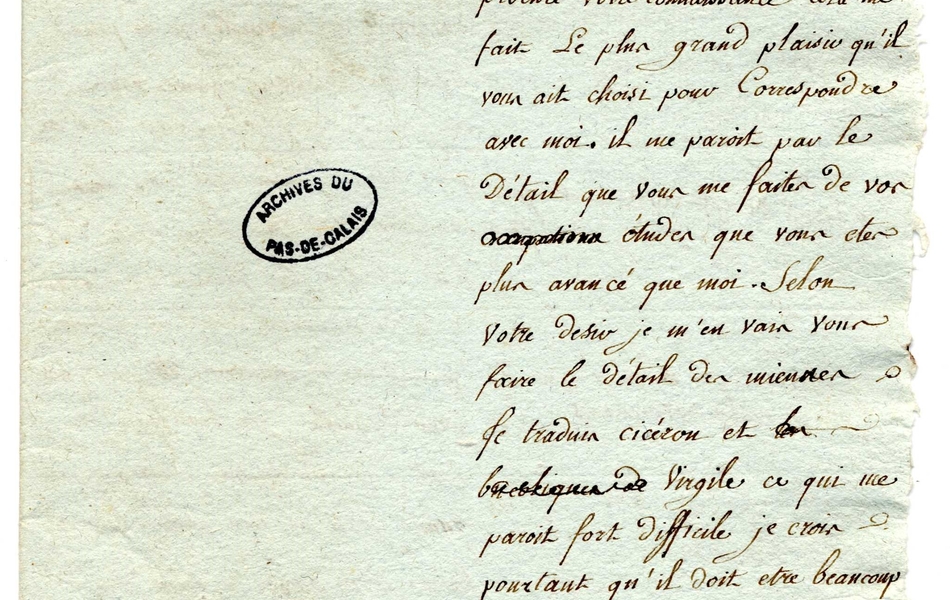 votre connoissance cela me
fait Le plus grand plaisir qu'il
vous ait choisi pour Correspondre
avec moi. il me paroit par le
Détail que vous me faites de vos
occupations études que vous etes
plus avancé que moi. Selon
Votre desir je m'en vais vous
faire le détail des miennes
Je traduis cicéron et les
bucoliques de Virgile ce qui me
paroit fort difficile je crois
pourtant qu'il doit etre beaucoup
ARCHIVES DU
PAS-DE-CALAIS